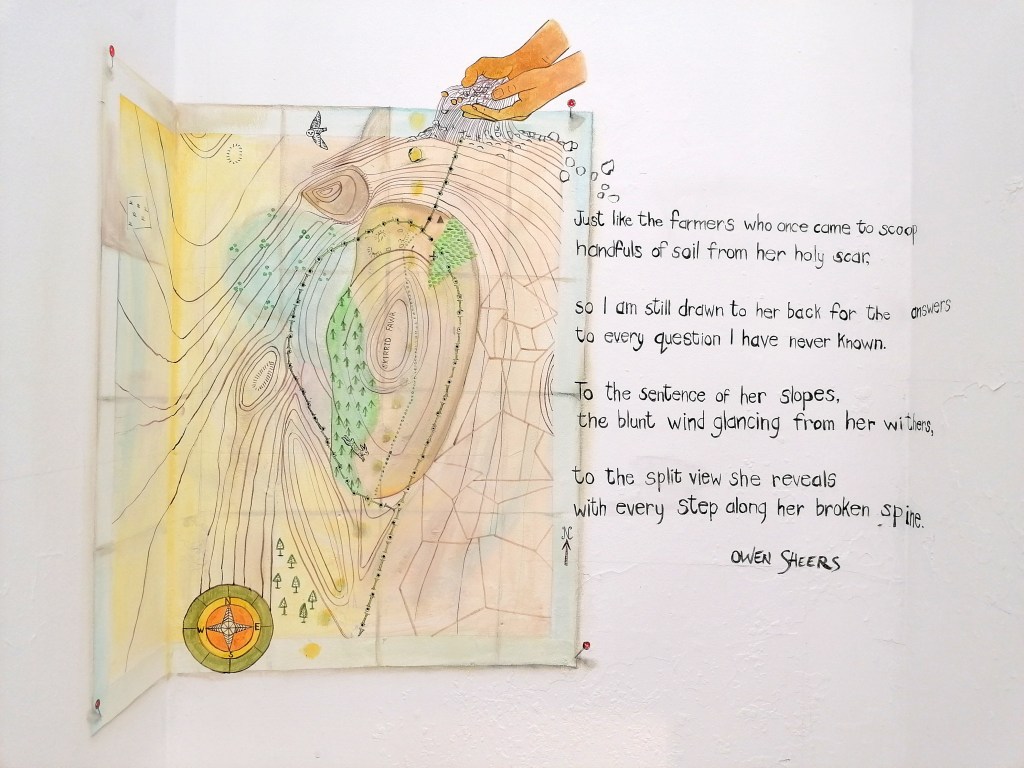 SKIRRID FAWR
N
W
E
S
N
Just like the farmers who once came to scoop
handfuls of soil from her holy scar,
so I am still drawn to her back for the answers
to every question I have never known.
To the sentence of her slopes,
the blunt wind glancing from her withers,
to the split view she reveals
with every step along her broken spine.
OWEN SHEERS